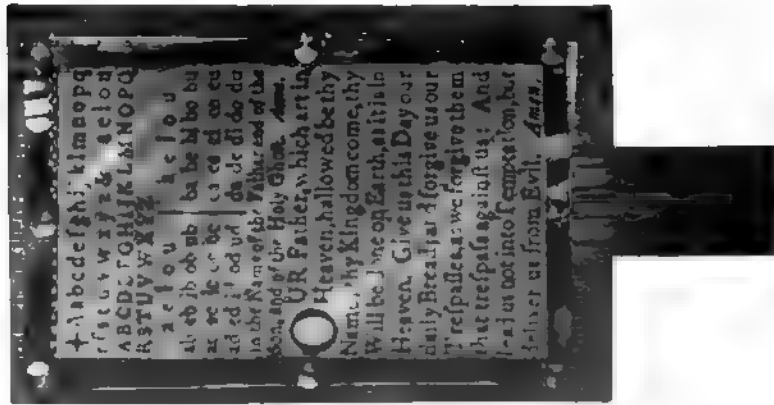 + Aabcdefghijklmnopq
rſstuvwxyz& aeiou
ABCDEFGHIJKLMNOPQ
RSTUVWXYZ
a e i o u a e i o u
ab eb ib ob ub ba be bi bo bu
ac ec ic oc uc ca ce ci co cu
ad ed id od ud da de di do du
In the Name of the Father and of the
Son, and of the Holy Ghoſt. Amen.
OUR Father, which art in
Heaven, hallowed be thy
Name; thy Kingdom come, thy
Will be done on Earth, as it is in
Heaven. Give us this Day our
daily Bread; and forgive us our
Treſpaſſes, as we forgive them
that treſpaſs againſt us: And
lead us not into Temptation, but
deliver us from Evil. Amen.